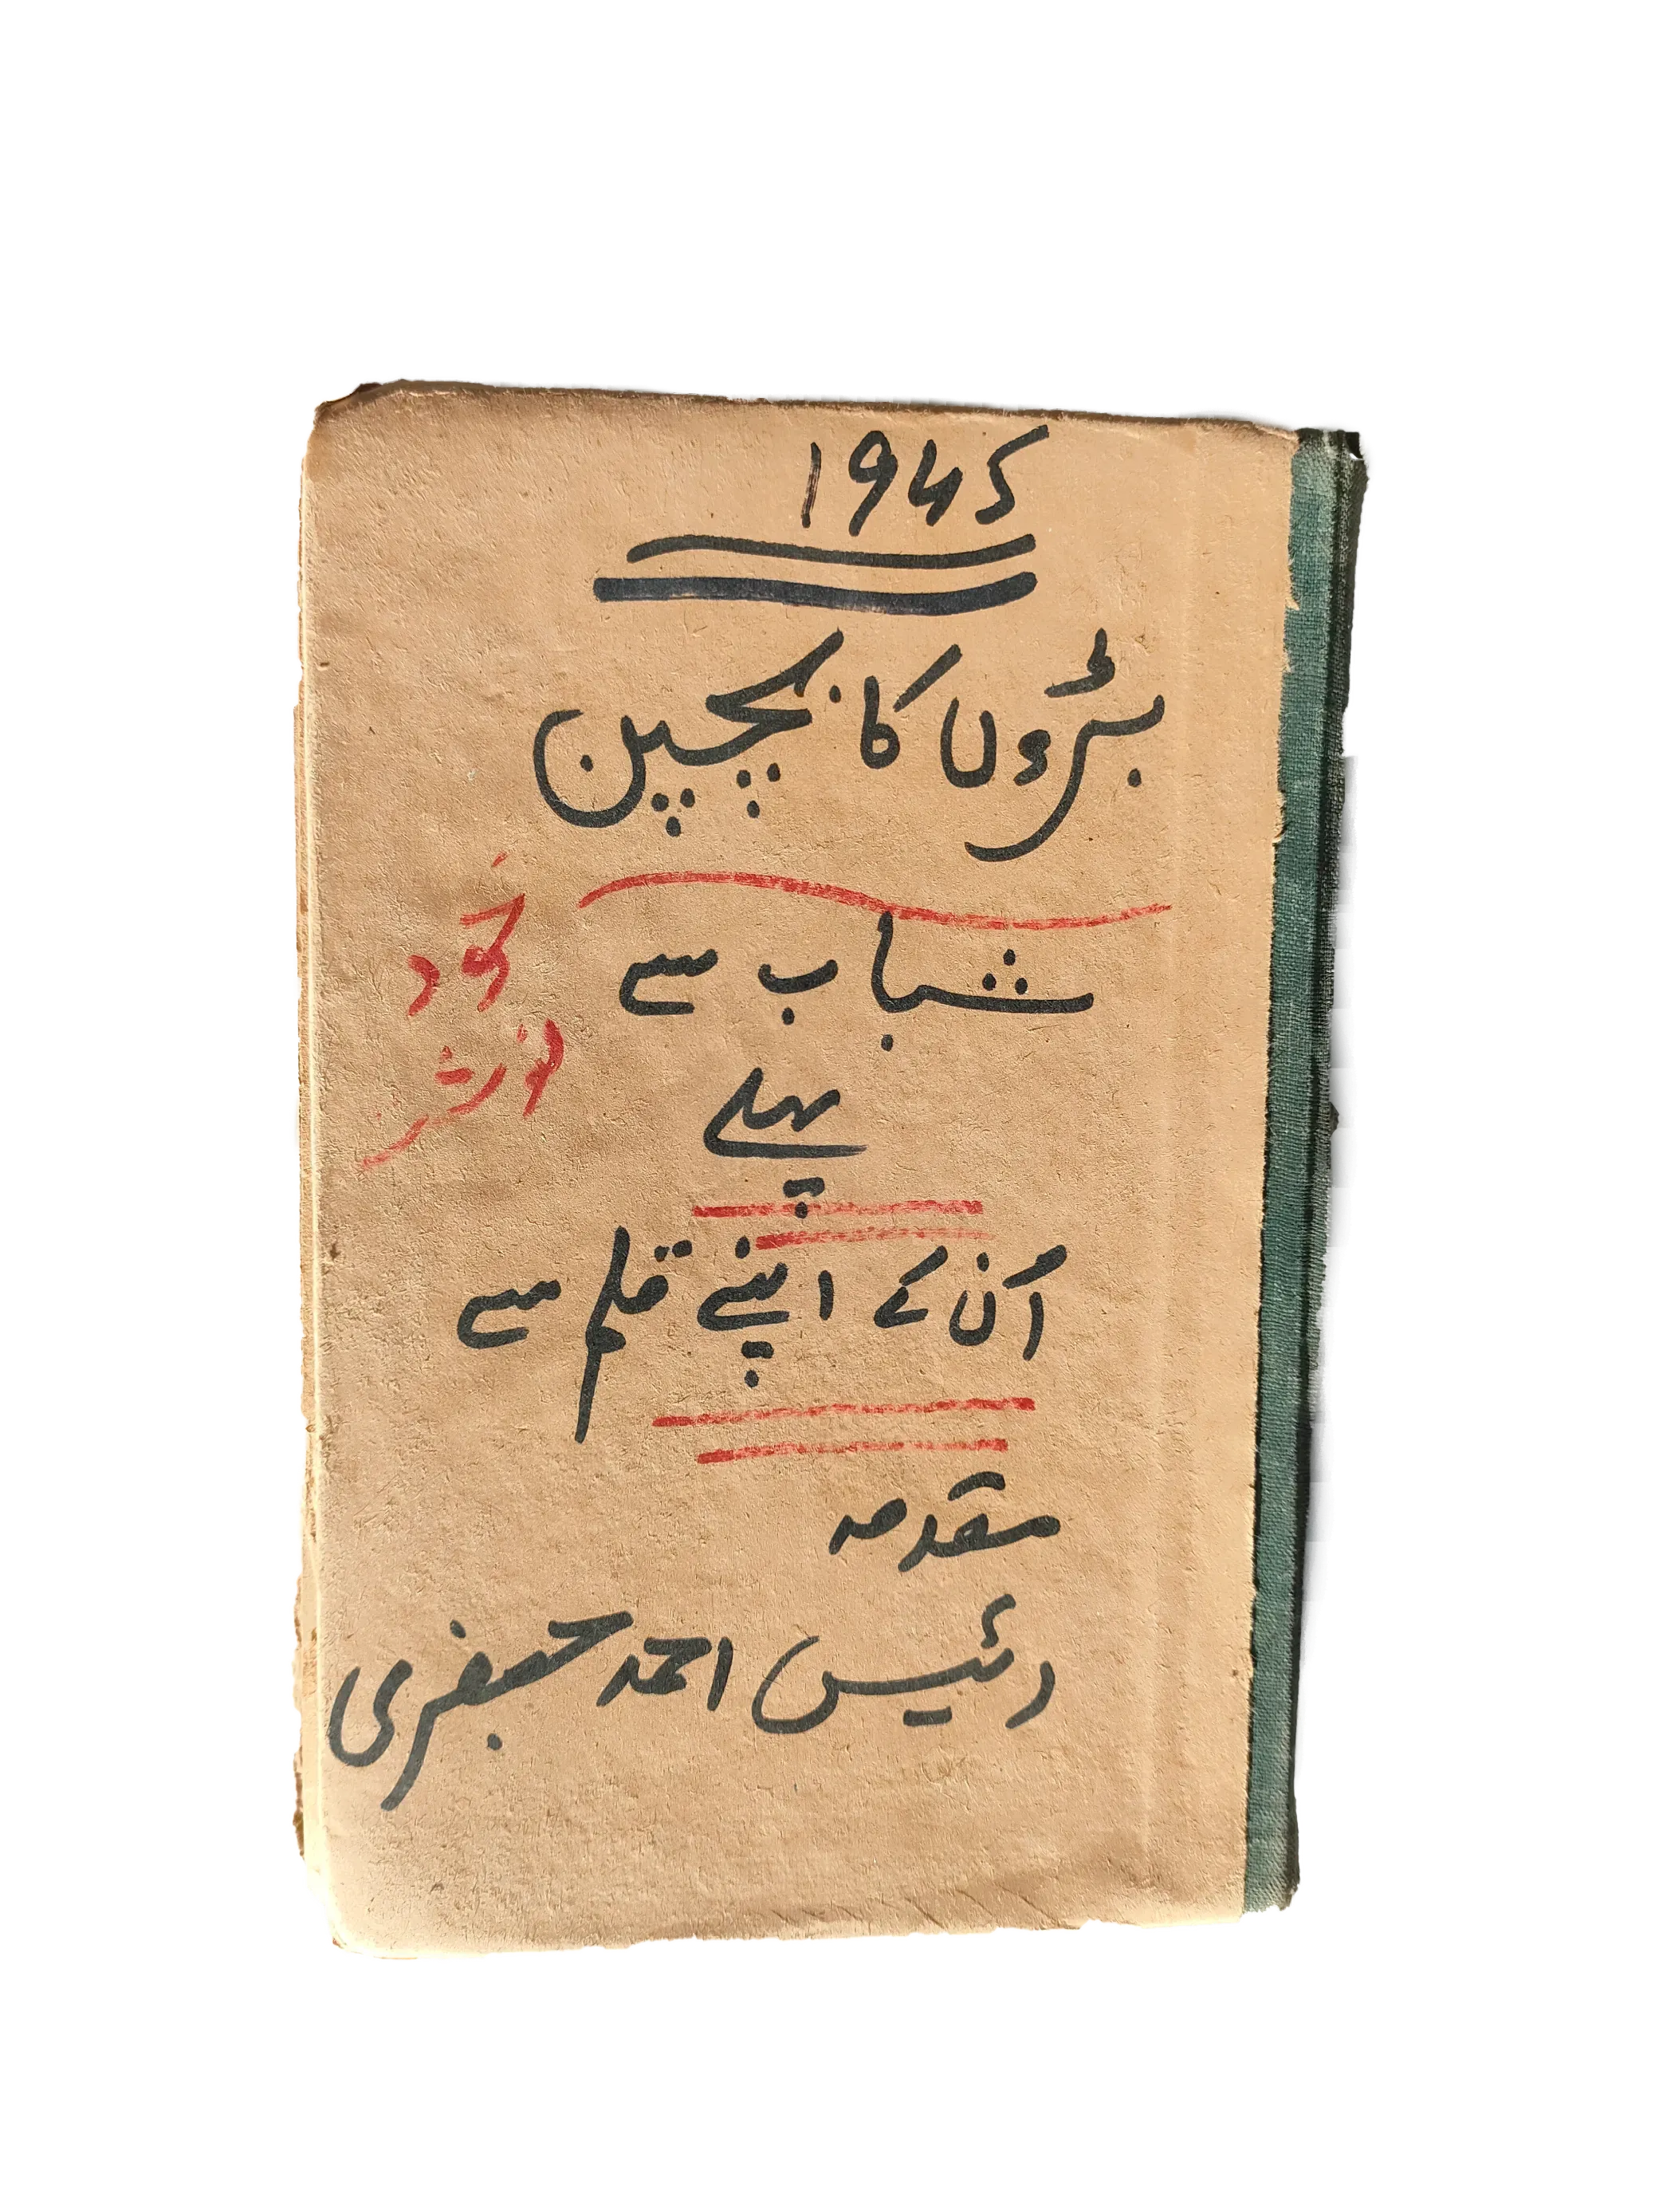 1945
بڑوں کا بچپن
شباب سے
پہلے
خود
نوشت
اُن کے اپنے قلم سے
مقدمہ
رئیس احمد جعفری